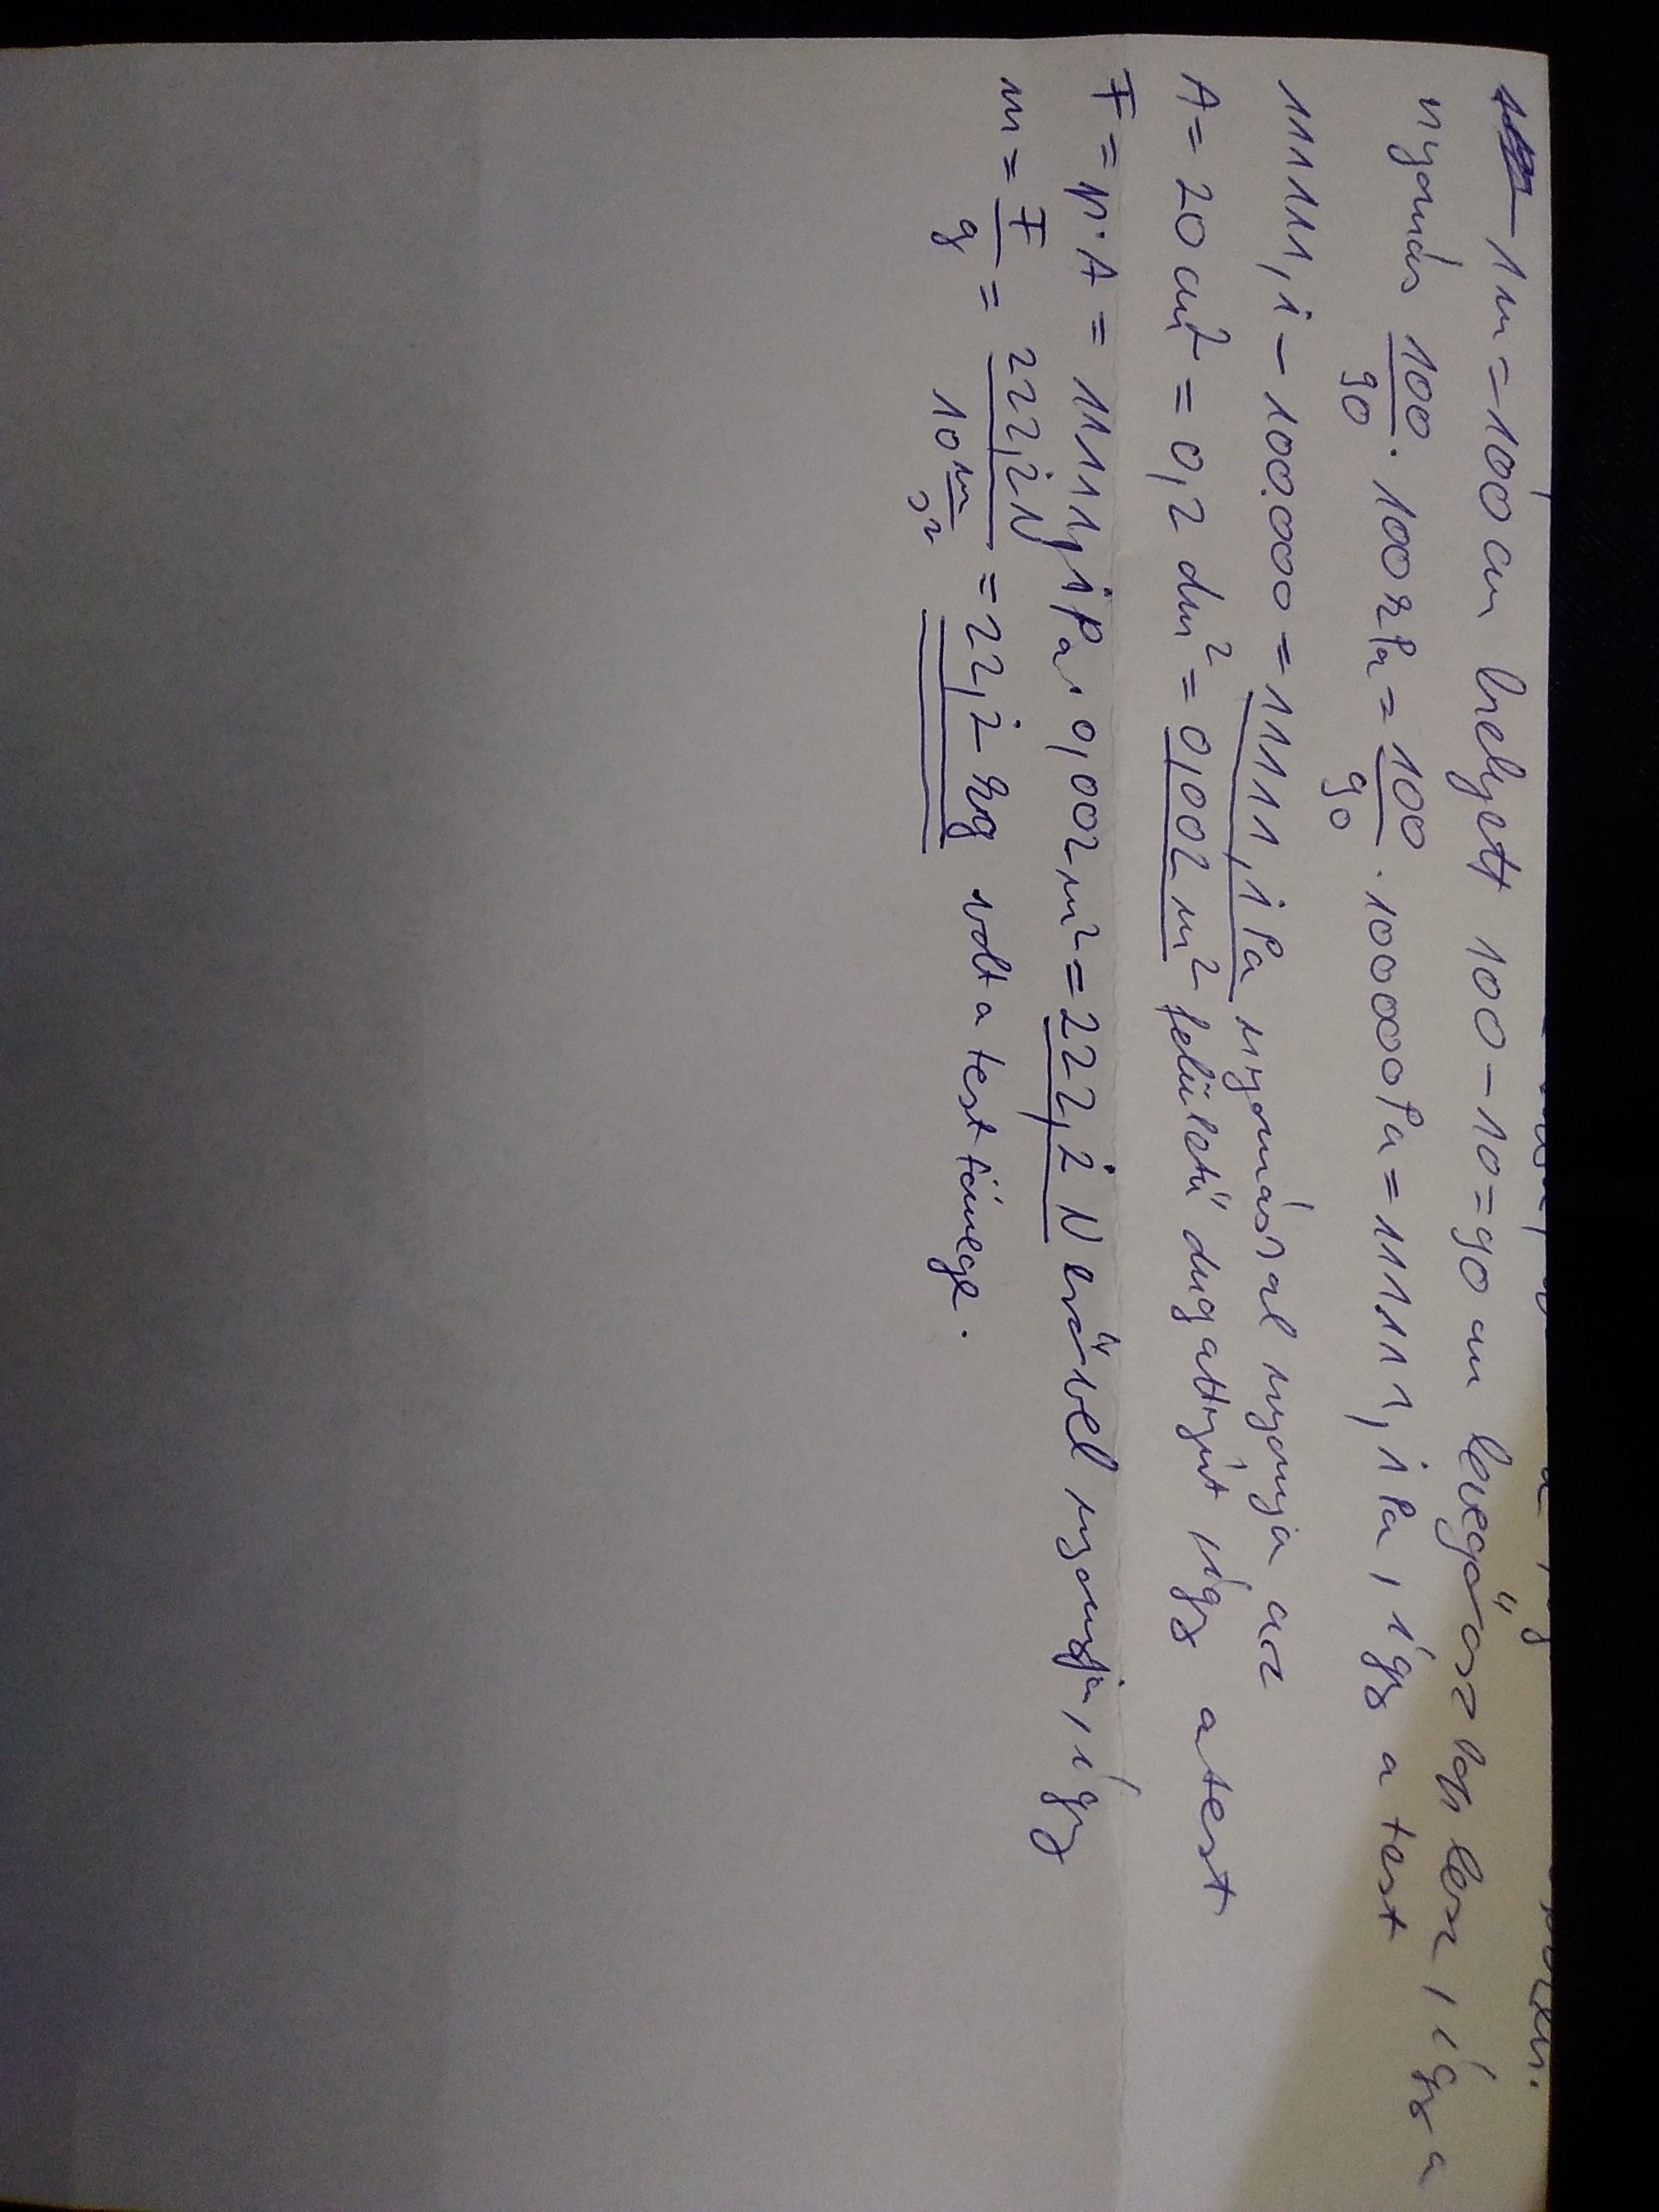 1m = 100 cm helyett 100 - 10 = 90 cm levegőoszlop lesz, így a
nyomás 100/90 · 100 kPa = 100/90 · 100000 Pa = 11111,1 Pa, így a test
11111,1 - 100.000 = 11111,1 Pa nyomással nyomja az
A = 20 cm² = 0,2 dm² = 0,002 m² felületű dugattyút így a test
F = p · A = 11111,1 Pa · 0,002 m² = 222,2 N erővel nyomja, így
m = F/g = 222,2 N / 10 m/s² = 22,2 kg volt a test tömege.